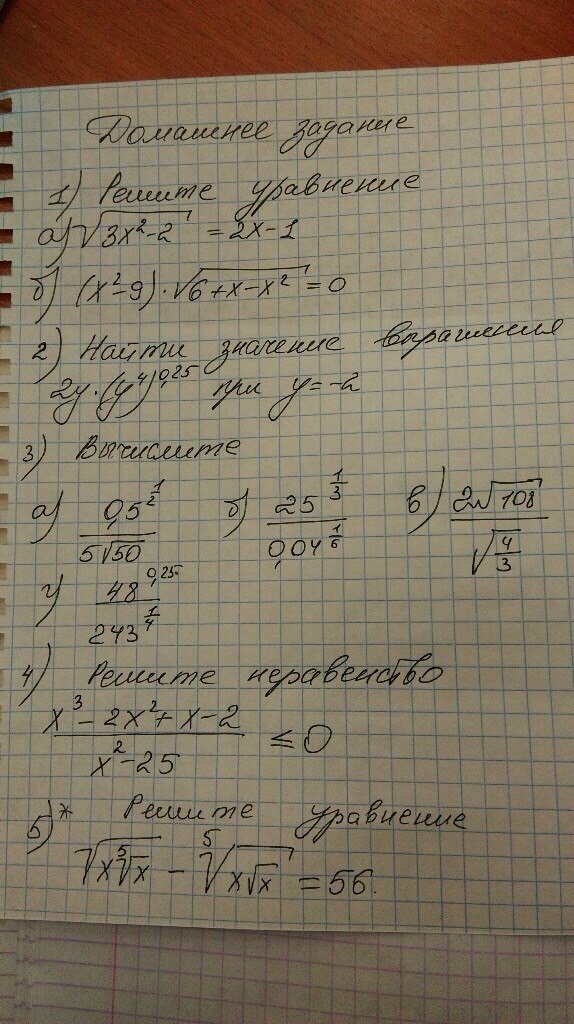 Домашнее задание
1) Решите уравнение
а) √(3x²-2) = 2x-1
б) (x²-9)·√(6+x-x²) = 0
2) Найти значение выражения
2y·(y⁴)^0,25 при y=-2
3) Вычислите
а) 0,5^(1/2) / 5√50 б) 25^(1/3) / 0,04^(1/6) в) 2√108 / √(4/3)
г) 48^0,25 / 243^(1/4)
4) Решите неравенство
(x³-2x²+x-2) / (x²-25) ≤ 0
5)* Решите уравнение
√(x⁵√x) - ⁵√(x√x) = 56.